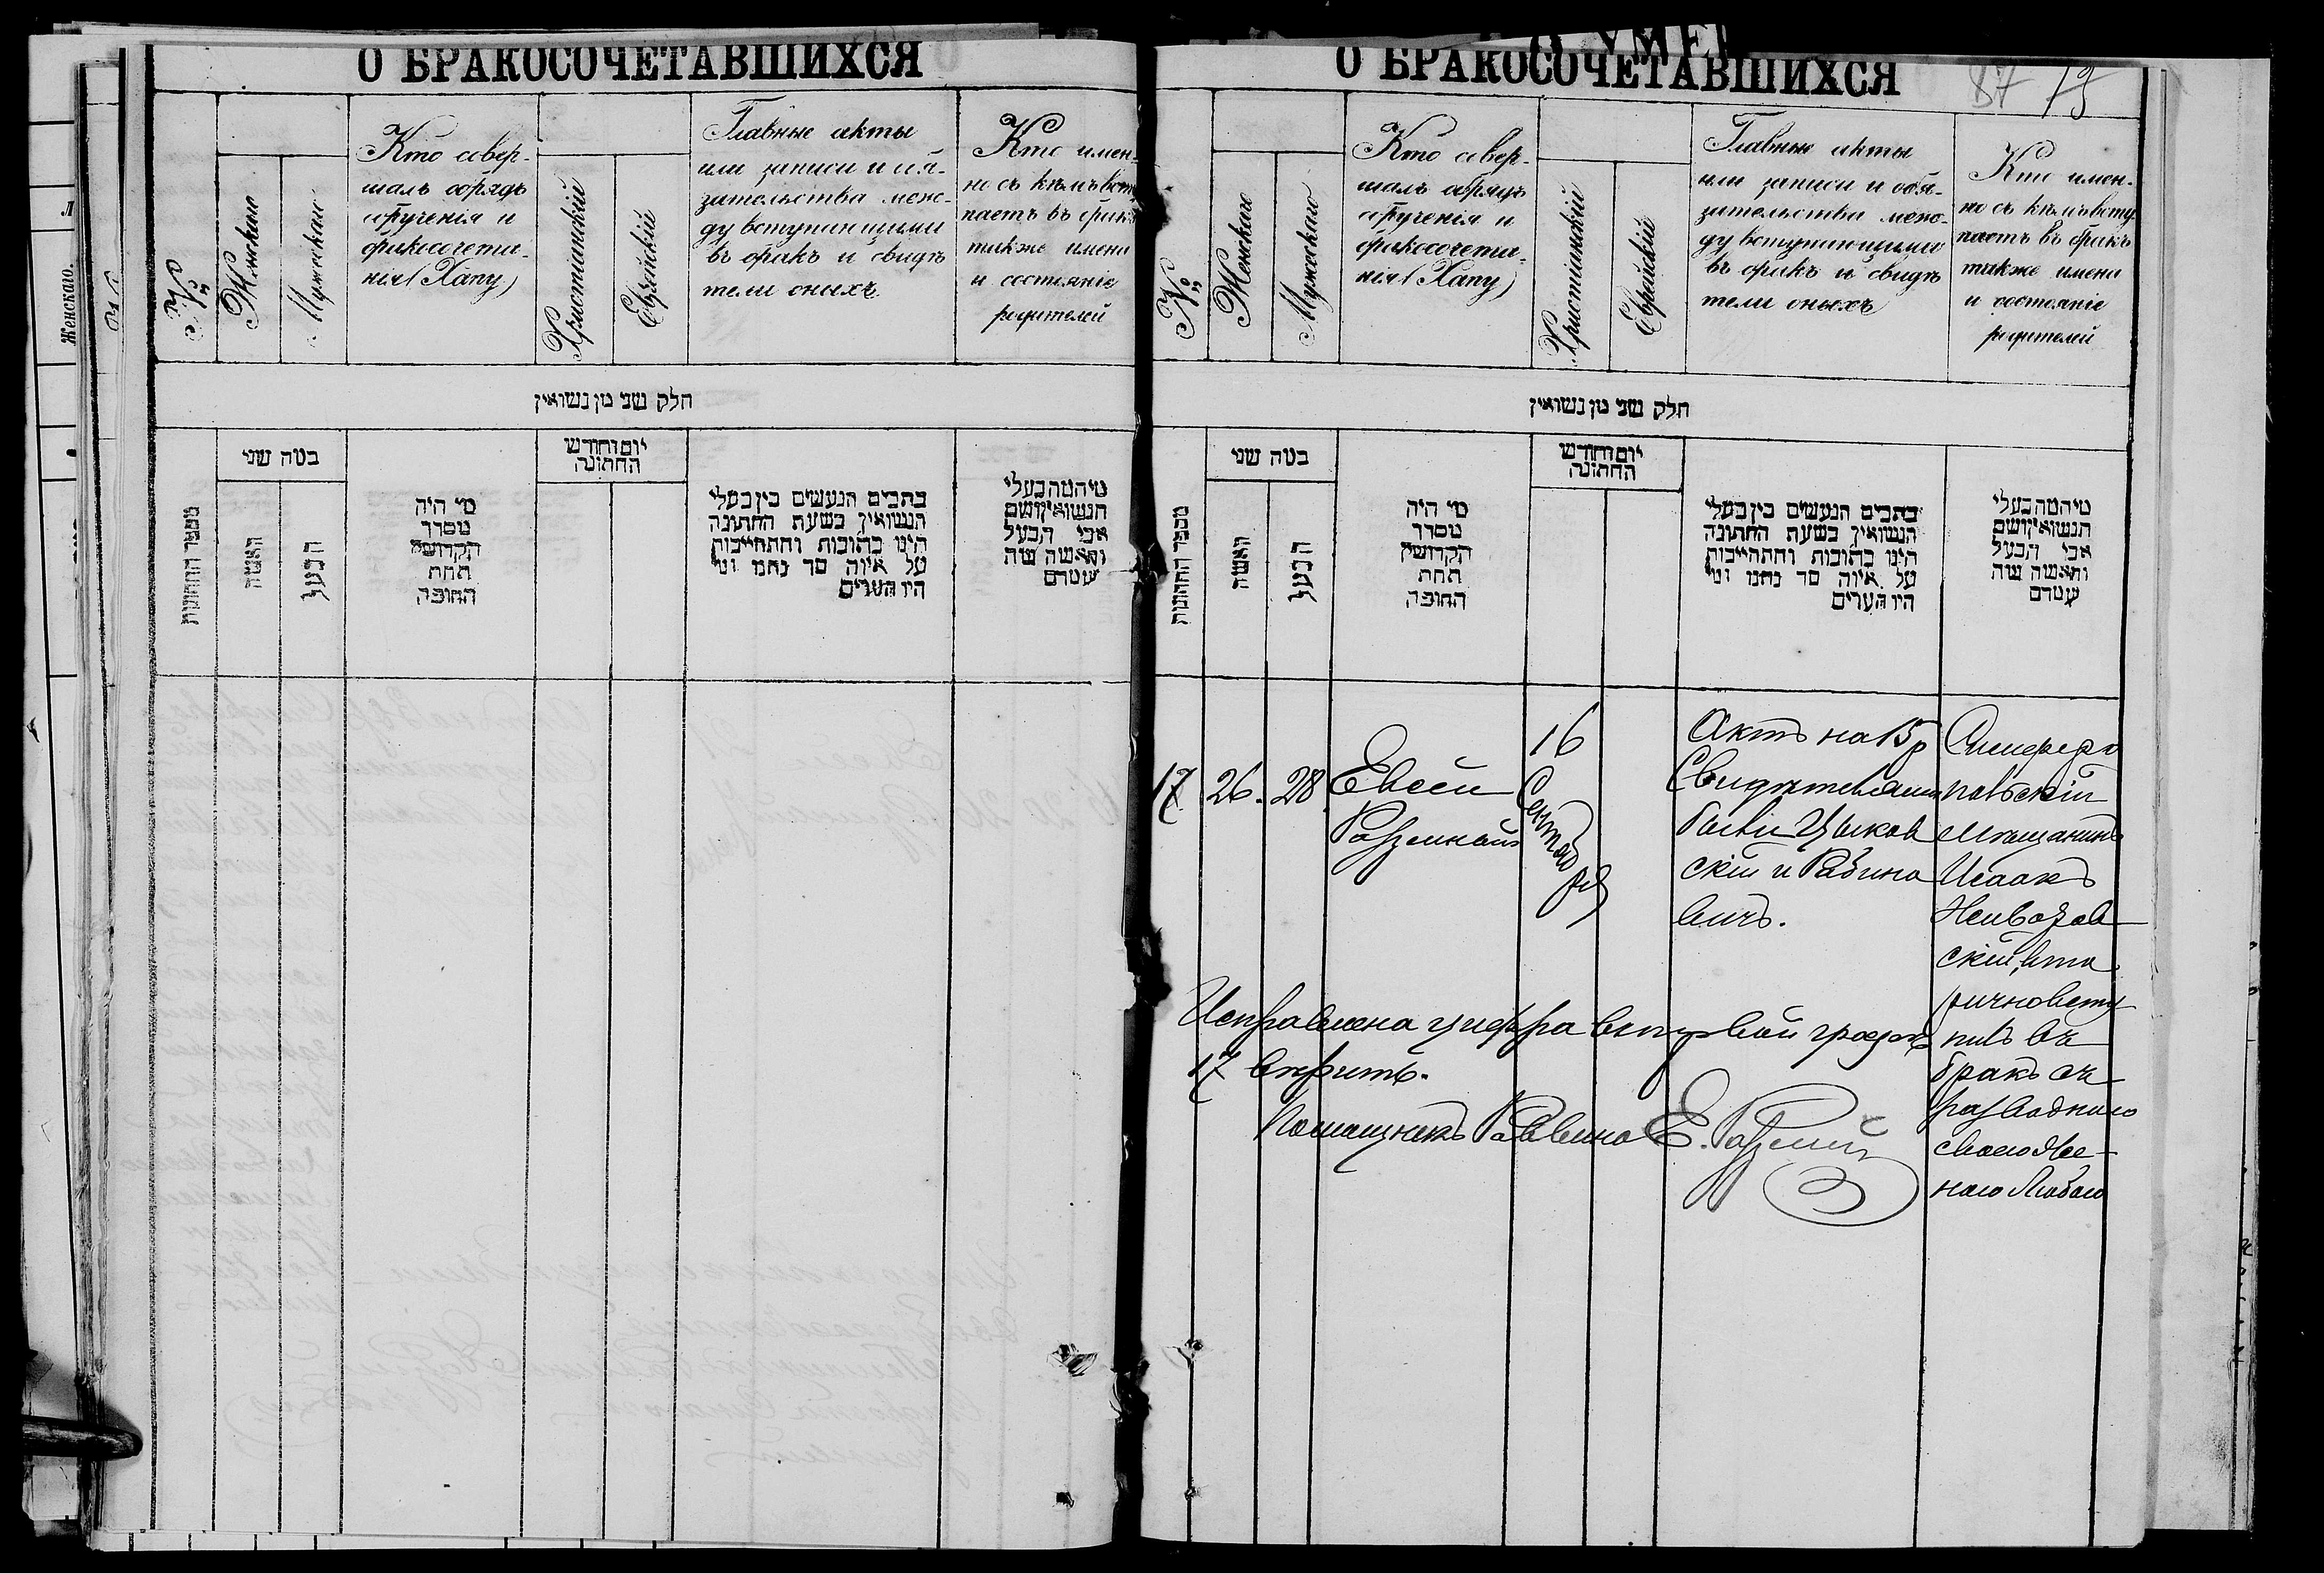 О БРАКОСОЧЕТАВШИХСЯ
№
Женскаго
Мужескаго
Кто совер-
шалъ обрядъ
обрученія и
бракосочета-
нія (Хапу)
Христіанскій
Еврейскій
Главные акты
или записи и обя-
зательства меж-
ду вступающими
въ бракъ и свидѣ
тели оныхъ
Кто имен-
но съ кѣмъ всту
паетъ въ бракъ
также имена
и состояніе
родителей
חלק שני מן נשואין
מספר החתונות
במה שני
האשה
הבעל
מי היה
מסדר
הקדושין
תחת
החופה
יום וחודש
החתונה
כתבים הנעשים בין בעלי
הנשואין בשעת החתונה
היינו כתובות והתחייבות
על איזה סך נתנו ומי
היו העדים
מיהמה בעלי
הנשואין ושם
אבי הבעל
והאשה מה
שמם
О БРАКОСОЧЕТАВШИХСЯ
87 19
№
Женскаго
Мужескаго
Кто совер-
шалъ обрядъ
обрученія и
бракосочета-
нія (Хапу)
Христіанскій
Еврейскій
Главные акты
или записи и обя-
зательства меж-
ду вступающими
въ бракъ и свидѣ
тели оныхъ
Кто имен-
но съ кѣмъ всту
паетъ въ бракъ
также имена
и состояніе
родителей
חלק שני מן נשואין
מספר החתונות
במה שני
האשה
הבעל
מי היה
מסדר
הקדושין
תחת
החופה
יום וחודש
החתונה
כתבים הנעשים בין בעלי
הנשואין בשעת החתונה
היינו כתובות והתחייבות
על איזה סך נתנו ומי
היו העדים
מיהמה בעלי
הנשואין ושם
אבי הבעל
והאשה מה
שמם
17 26. 28
Евсей
16
Сентяб
ря
Актъ на 15 р
Свидѣтелями
были Цыков
скій и Рабино
вичъ.
Симферо
польскій
мѣщанинъ
Исаакъ
скій, вто
рично всту
пилъ въ
бракъ съ
разводною
своею же-
ною Любою
Исправлена цифра въ первой графѣ
17 вѣрить.
Помощникъ Раввина Е.